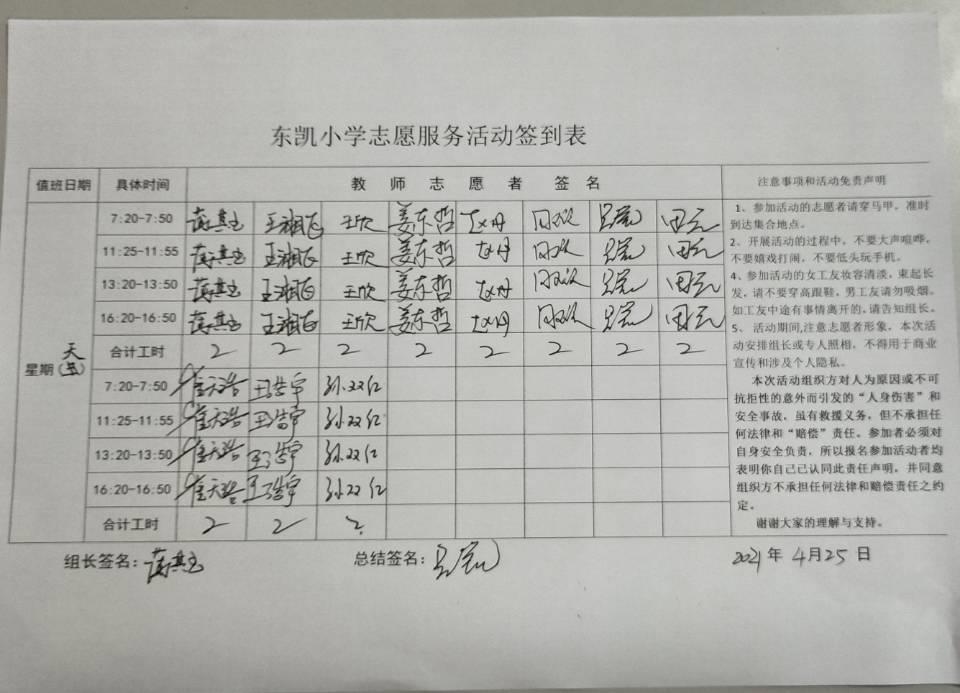 东凯小学志愿服务活动签到表
值班日期 具体时间 教师志愿者签名 注意事项和活动免责声明
7:20-7:50 王湘 王欣 姜东哲 赵丹
11:25-11:55 王湘 王欣 姜东哲 赵丹
13:20-13:50 王湘 王欣 姜东哲 赵丹
16:20-16:50 王湘 王欣 姜东哲 赵丹
合计工时 2 2 2 2 2 2 2 2
星期(五)
天
7:20-7:50 崔天浩 王浩宇 孙双红
11:25-11:55 崔天浩 王浩宇 孙双红
13:20-13:50 崔天浩 王浩宇 孙双红
16:20-16:50 崔天浩 王浩宇 孙双红
合计工时 2 2 2
1、参加活动的志愿者请穿马甲,准时
到达集合地点。
2、开展活动的过程中,不要大声喧哗,
不要嬉戏打闹,不要低头玩手机。
4、参加活动的女工友妆容清淡,束起长
发,请不要穿高跟鞋,男工友请勿吸烟。
如工友中途有事情离开的,请告知组长。
5、活动期间,注意志愿者形象,本次活
动安排组长或专人照相,不得用于商业
宣传和涉及个人隐私。
本次活动组织方对人为原因或不可
抗拒性的意外而引发的“人身伤害”和
安全事故,虽有救援义务,但不承担任
何法律和“赔偿”责任。参加者必须对
自身安全负责,所以报名参加活动者均
表明你自己己认同此责任声明,并同意
组织方不承担任何法律和赔偿责任之约
定。
谢谢大家的理解与支持。
组长签名: 总结签名: 2021年4月25日